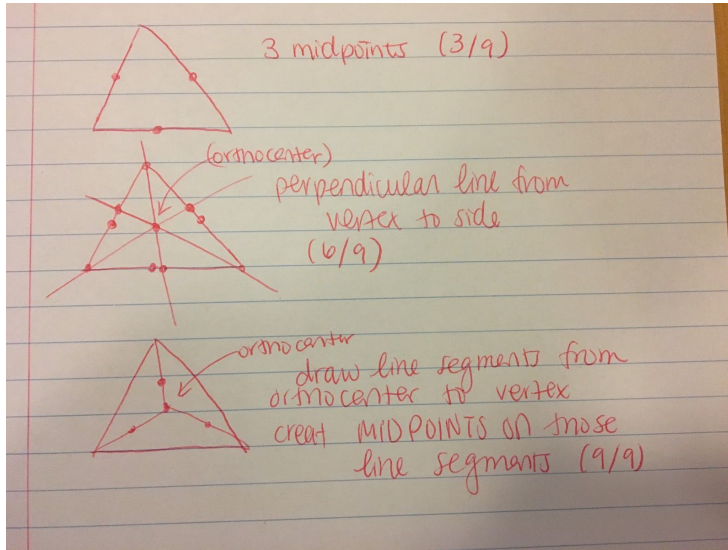 3 midpoints (3/9)
(orthocenter)
perpendicular line from
vertex to side
(6/9)
orthocenter
draw line segments from
orthocenter to vertex
creat MIDPOINTS on those
line segments (9/9)